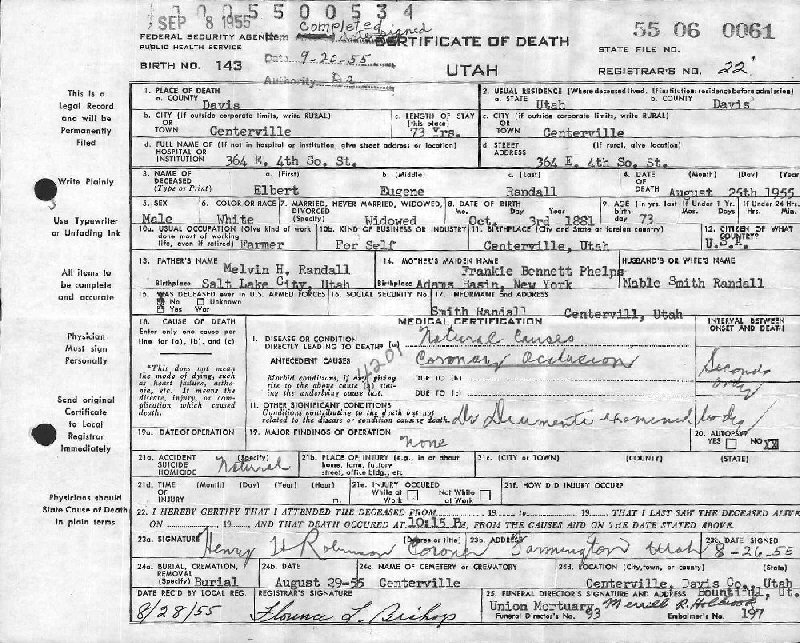 0 0 5 5 0 0 5 3 4
SEP 8 1955
Completed
FEDERAL SECURITY AGENCY
PUBLIC HEALTH SERVICE
Item
Date 9-26-55
Authority
CERTIFICATE OF DEATH
UTAH
BIRTH NO. 143
55 06 0061
STATE FILE NO.
REGISTRAR'S NO. 22
This is a
Legal Record
and will be
Permanently
Filed
Write Plainly
Use Typewriter
or Unfading Ink
All items to
be complete
and accurate
Physician
Must sign
Personally
Send original
Certificate
to Local
Registrar
Immediately
Physicians should
State Cause of Death
in plain terms
1. PLACE OF DEATH
a. COUNTY Davis
2. USUAL RESIDENCE (Where deceased lived. If institution: residence before admission)
a. STATE Utah b. COUNTY Davis
b. CITY (If outside corporate limits, write RURAL)
OR
TOWN Centerville
c. LENGTH OF STAY
(this place)
73 Yrs.
c. CITY (If outside corporate limits, write RURAL)
OR
TOWN Centerville
d. FULL NAME OF (If not in hospital or institution, give street address or location)
HOSPITAL OR
INSTITUTION 364 E. 4th So. St.
d. STREET (If rural, give location)
ADDRESS 364 E. 4th So. St.
3. NAME OF
DECEASED
(Type or Print)
a. (First) b. (Middle) c. (Last)
Elbert Eugene Randall
4. DATE OF DEATH (Month) (Day) (Year)
August 25th 1955
5. SEX
Male
6. COLOR OR RACE
White
7. MARRIED, NEVER MARRIED, WIDOWED,
DIVORCED (Specify)
Widowed
8. DATE OF BIRTH
Mo. Day Year
Oct. 3rd 1881
9. AGE (in yrs last
birth day 73
If Under 1 Yr.
Mos. Days
If Under 24 Hrs.
Hrs. Min.
10a. USUAL OCCUPATION (Give kind of work
done most of working
life, even if retired) Farmer
10b. KIND OF BUSINESS OR INDUSTRY
For Self
11. BIRTHPLACE (City and State or foreign country)
Centerville, Utah
12. CITIZEN OF WHAT
COUNTRY?
U.S.A.
13. FATHER'S NAME
Melvin H. Randall
Birthplace Salt Lake City, Utah
14. MOTHER'S MAIDEN NAME
Frankie Bennett Phelps
Birthplace Adams Basin, New York
HUSBAND'S OR WIFE'S NAME
Mable Smith Randall
15. WAS DECEASED ever in U.S. ARMED FORCES
No Unknown
Yes War
16. SOCIAL SECURITY No.
17. INFORMANT and ADDRESS
Smith Randall Centervill, Utah
18. CAUSE OF DEATH
Enter only one cause per
line for (a), (b), and (c)
*This does not mean
the mode of dying, such
as heart failure, asthe-
nia, etc. It means the
disease, injury, or com-
plication which caused
death.
MEDICAL CERTIFICATION
INTERVAL BETWEEN
ONSET AND DEATH
I. DISEASE OR CONDITION
DIRECTLY LEADING TO DEATH* (a) Natural Causes
ANTECEDENT CAUSES Coronary Occlusion
4201
Morbid conditions, if any, giving
rise to the above cause (a) stat-
ing the underlying cause last.
DUE TO (b)
DUE TO (c)
Seconds
only
II. OTHER SIGNIFICANT CONDITIONS
Conditions contributing to the death but not
related to the disease or condition causing death.
examined body
19a. DATE OF OPERATION
19. MAJOR FINDINGS OF OPERATION
None
20. AUTOPSY
YES NO XX
21a. ACCIDENT (Specify)
SUICIDE
HOMICIDE
Natural
21b. PLACE OF INJURY (e.g., in or about
home, farm, factory
street, office bldg., etc.
21c. (CITY or TOWN) (COUNTY) (STATE)
21d. TIME (Month) (Day) (Year) (Hour)
OF
INJURY m.
21e. INJURY OCCURED
While at Work Not While at Work
21f. HOW DID INJURY OCCUR?
22. I HEREBY CERTIFY THAT I ATTENDED THE DECEASED FROM 19 to 19 THAT I LAST SAW THE DECEASED ALIVE
ON 19 AND THAT DEATH OCCURED AT 10:15 P., FROM THE CAUSES AND ON THE DATE STATED ABOVE.
23a. SIGNATURE (Degree or title) 23b. ADDRESS 23c. DATE SIGNED
Henry H Robinson Coroner Farmington Utah 8-26-55
24a. BURIAL, CREMATION,
REMOVAL
(Specify) Burial
24b. DATE
August 29-55
24c. NAME OF CEMETERY or CREMATORY
Centerville
24d. LOCATION (City, town, or county) (State)
Centerville, Davis Co., Utah
DATE REC'D BY LOCAL REG.
8/28/55
REGISTRAR'S SIGNATURE
Florence L. Bishop
25. FUNERAL DIRECTOR'S SIGNATURE AND ADDRESS Bountiful, Ut.
Union Mortuary Merrill R. Holbrook
Funeral Director's No. 93 Embalmer's No. 197